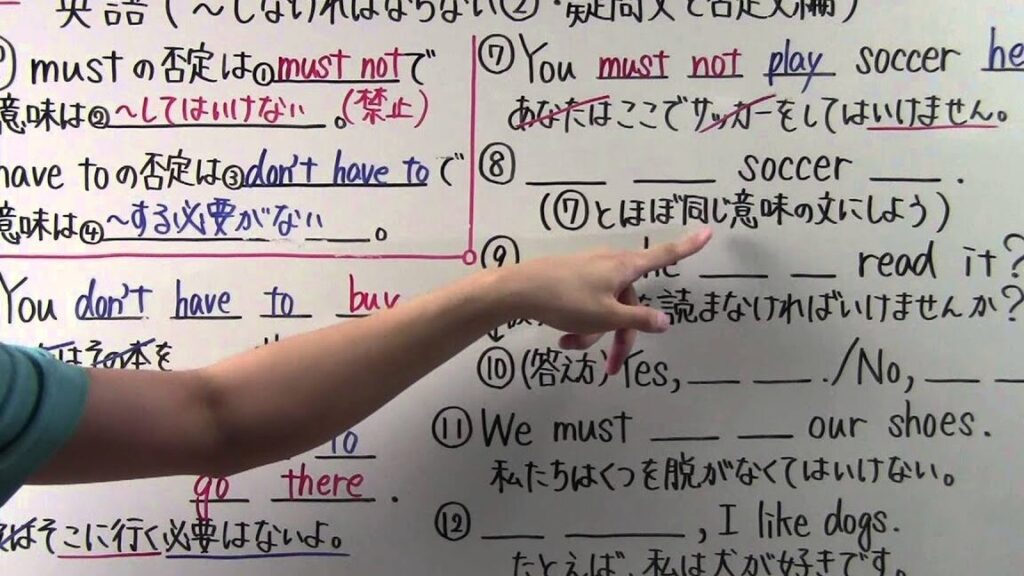 英語(～しなければならない②・疑問文と否定文編)
mustの否定は①must notで
意味は②～してはいけない。(禁止)
have toの否定は③don't have toで
意味は④～する必要がない。
You don't have to buy
その本を
to
go there.
そこに行く必要はないよ。
⑦You must not play soccer he
あなたはここでサッカーをしてはいけません。
⑧____ ____ soccer ____.
(⑦とほぼ同じ意味の文にしよう)
⑨ he ____ ____ read it?
を読まなければいけませんか?
⑩(答え方)Yes, ____ ____. /No, ____ ____
⑪We must ____ ____ our shoes.
私たちはくつを脱がなくてはいけない。
⑫____ ____, I like dogs.
たとえば、私は犬が好きです。